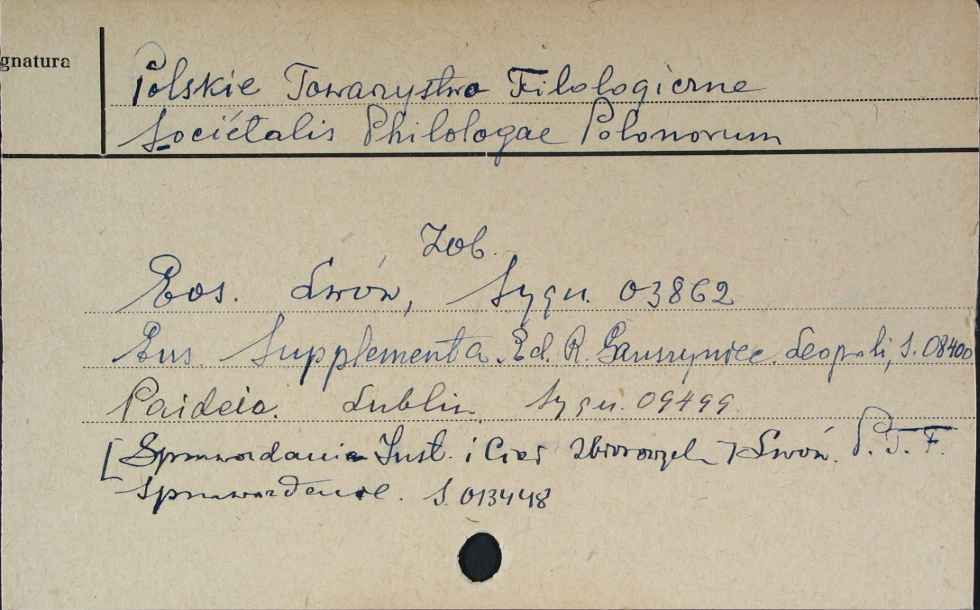 gnatura
Polskie Towarzystwo Filologiczne
Sociétalis Philologae Polonorum
Zob.
Eos. Lwów, Sygn. 03862
Eus. Supplementa. Ed. R. Ganszyniec. Leopoli, S. 08400
Paideia. Lublin, Sygn. 09499
[Sprawozdania Inst. i Ciał Zbiorowych] Lwów. P.T.F.
Sprawozdanie. S. 013448